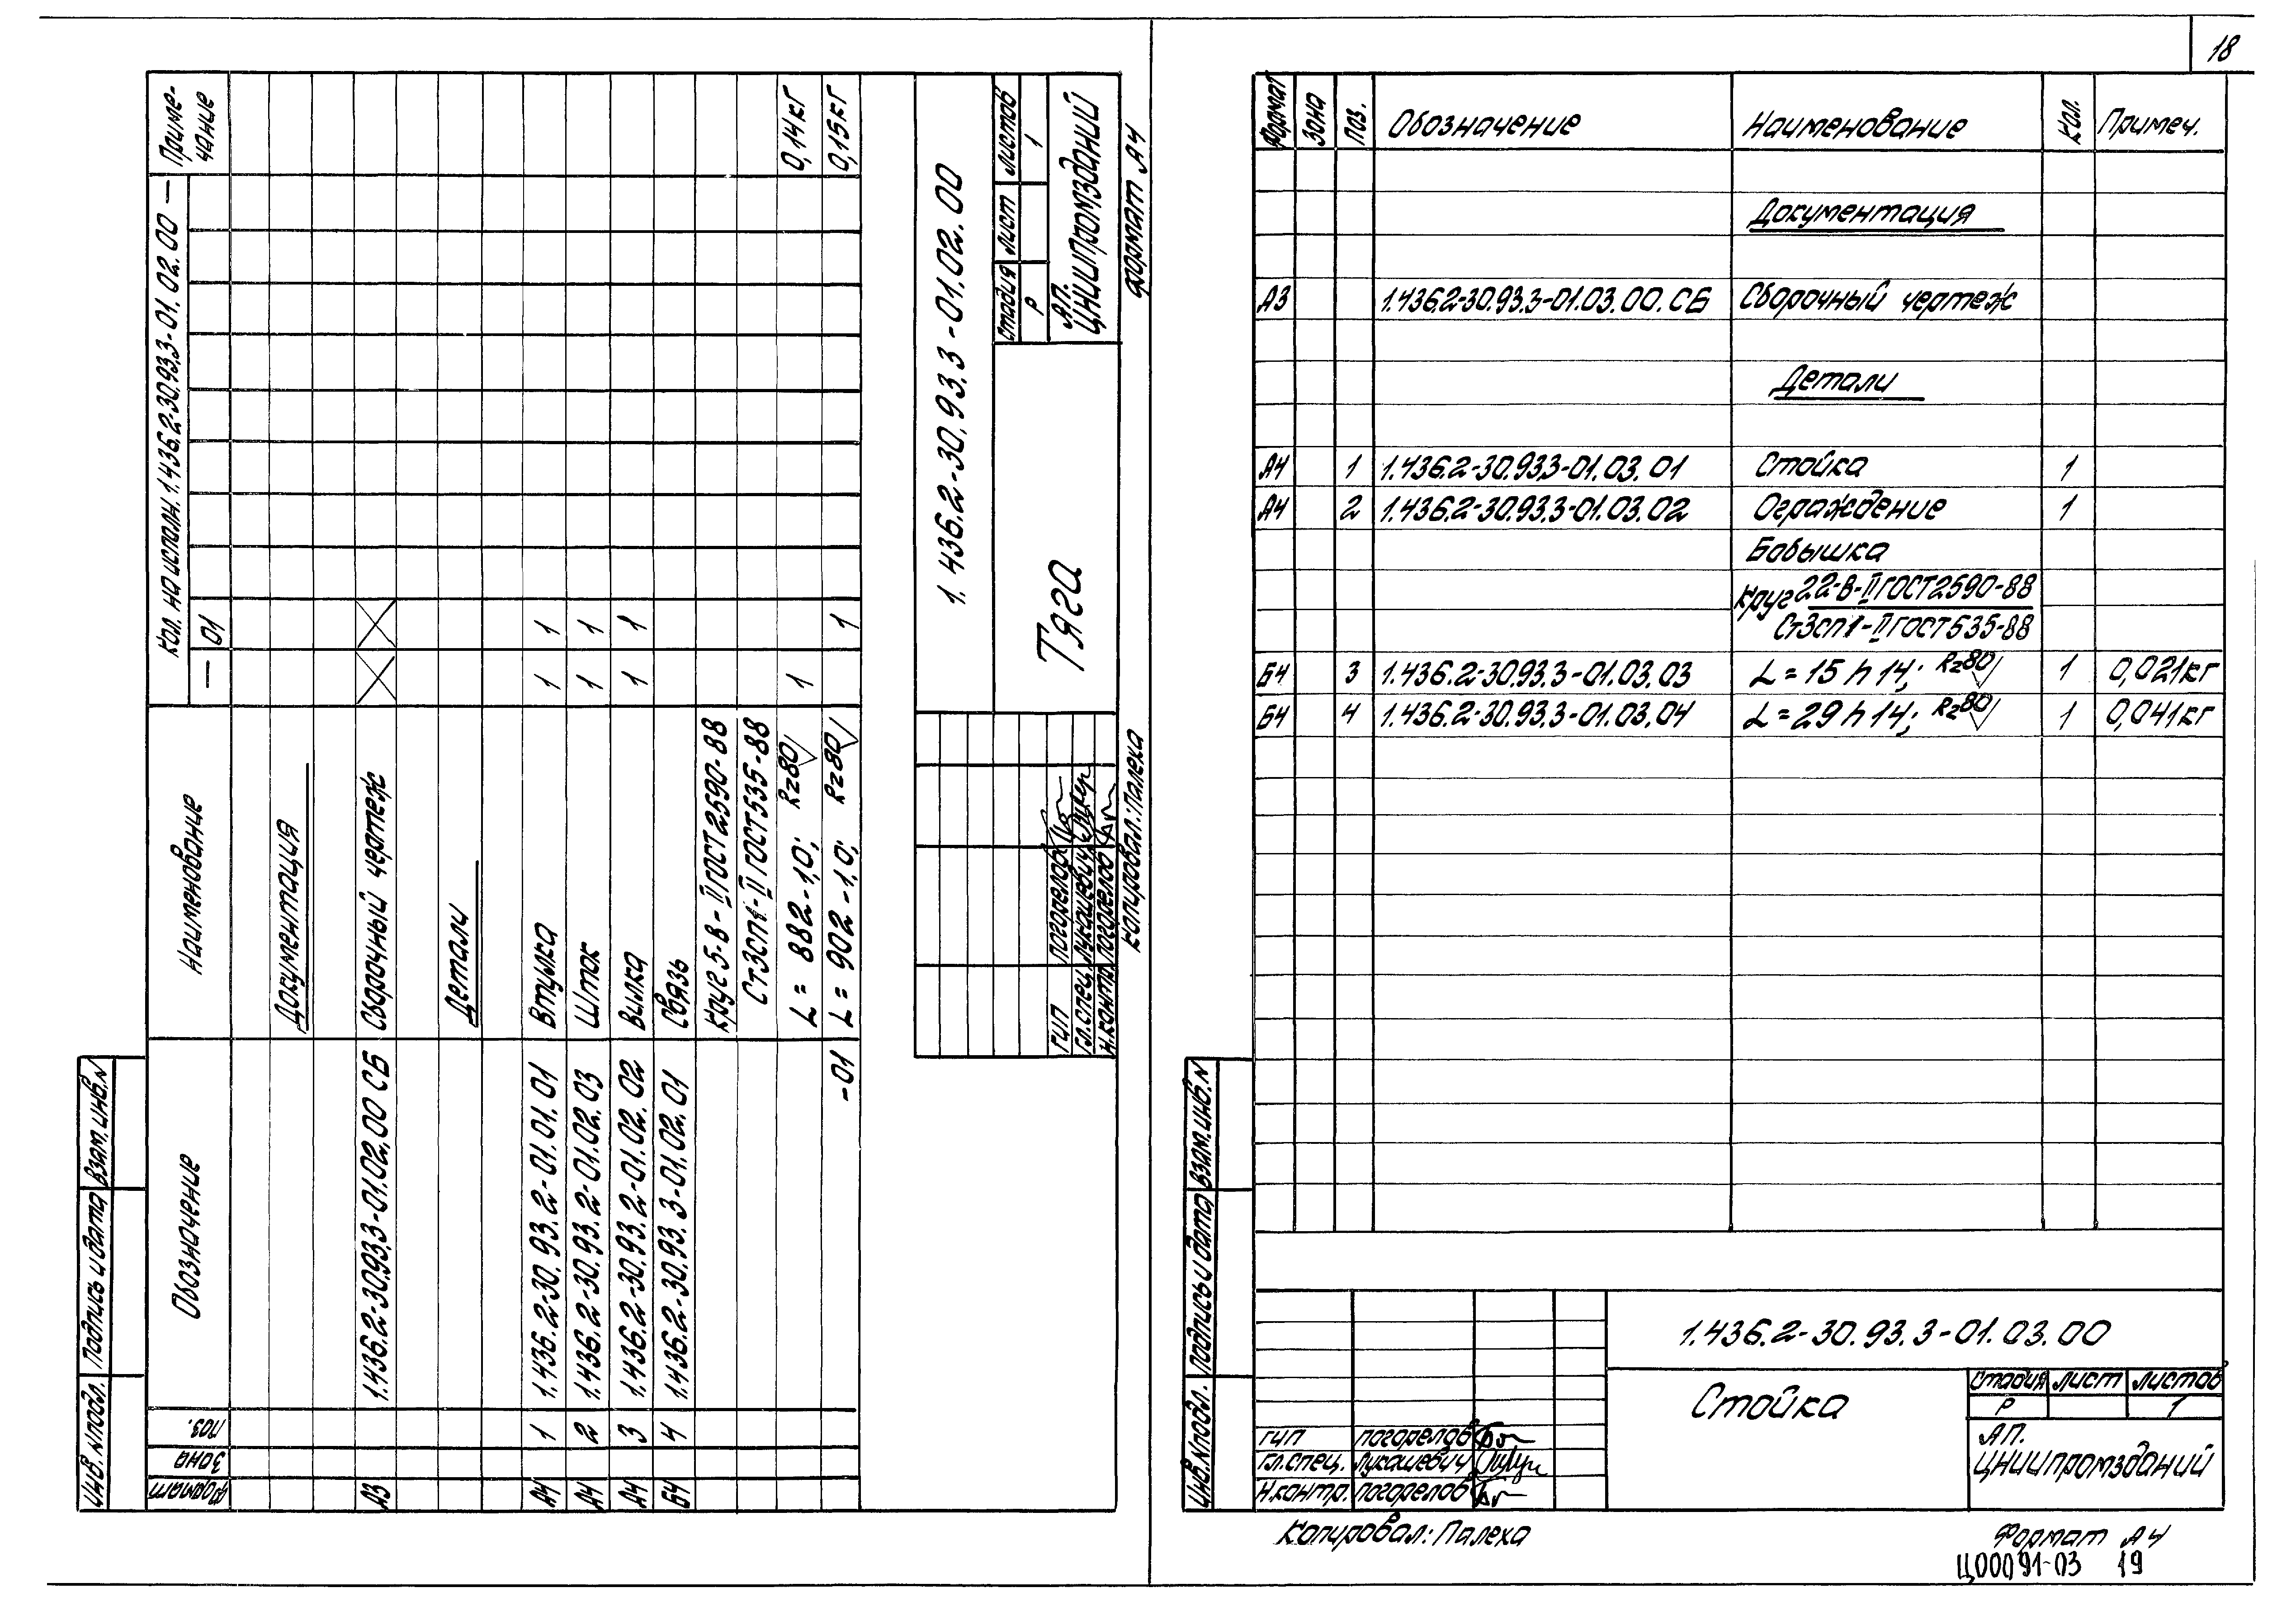 18
Формат Зона Поз. Обозначение Наименование Кол. на исполн. 1.436.2-30.93.3-01.02.00 — Приме-
чание
— 01
Документация
А3 1.436.2-30.93.3-01.02.00 СБ Сборочный чертеж
Детали
А4 1 1.436.2-30.93.2-01.01.01 Втулка 1 1
А4 2 1.436.2-30.93.2-01.02.03 Шток 1 1
А4 3 1.436.2-30.93.2-01.02.02 Вилка 1 1
Б4 4 1.436.2-30.93.3-01.02.01 Связь
Круг 5-В-II ГОСТ 2590-88
Ст3сп1-II ГОСТ 535-88
L = 882-1,0; Rz80 1 0,14 кг
-01 L = 902-1,0; Rz80 1 0,15 кг
1.436.2-30.93.3-01.02.00
Тяга
Стадия Лист Листов
Р 1
АП.
ЦНИИпромзданий
ГИП Погорелов
Гл.спец. Лукашевич
Н.контр. Погорелов
Копировал: Палеха Формат А4
Инв.№подл. Подпись и дата Взам.инв.№
Формат Зона Поз. Обозначение Наименование Кол. Примеч.
Документация
А3 1.436.2-30.93.3-01.03.00.СБ Сборочный чертеж
Детали
А4 1 1.436.2-30.93.3-01.03.01 Стойка 1
А4 2 1.436.2-30.93.3-01.03.02 Ограждение 1
Бобышка
Круг 22-В-II ГОСТ 2590-88
Ст3сп1-II ГОСТ 535-88
Б4 3 1.436.2-30.93.3-01.03.03 L = 15 h 14; Rz80 1 0,021кг
Б4 4 1.436.2-30.93.3-01.03.04 L = 29 h 14; Rz80 1 0,041кг
1.436.2-30.93.3-01.03.00
Стойка
Стадия Лист Листов
Р 1
АП.
ЦНИИпромзданий
ГИП Погорелов
Гл.спец. Лукашевич
Н.контр. Погорелов
Инв.№подл. Подпись и дата Взам.инв.№
Копировал: Палеха Формат А4
Ц00091-03 19